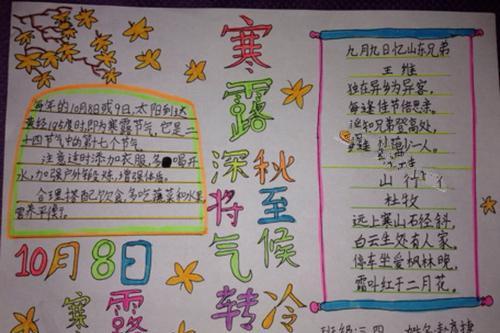 每年的10月8日或9日,太阳到达
黄经195度时,即为寒露节气,它是二
十四节气中的第十七个节气
注意过时添加衣服,多喝开
水,加强户外锻炼,增强体质。
合理搭配饮食,多吃蔬菜和水果
营养平衡。
10月8日
寒露
寒露
深秋
将至
气候
转冷
九月九日忆山东兄弟
王维
独在异乡为异客,
每逢佳节倍思亲,
遥知兄弟登高处,
少一人。
山行
杜牧
远上寒山石径斜,
白云生处有人家,
停车坐爱枫林晚,
霜叶红于二月花。
班级:三.四 姓名: